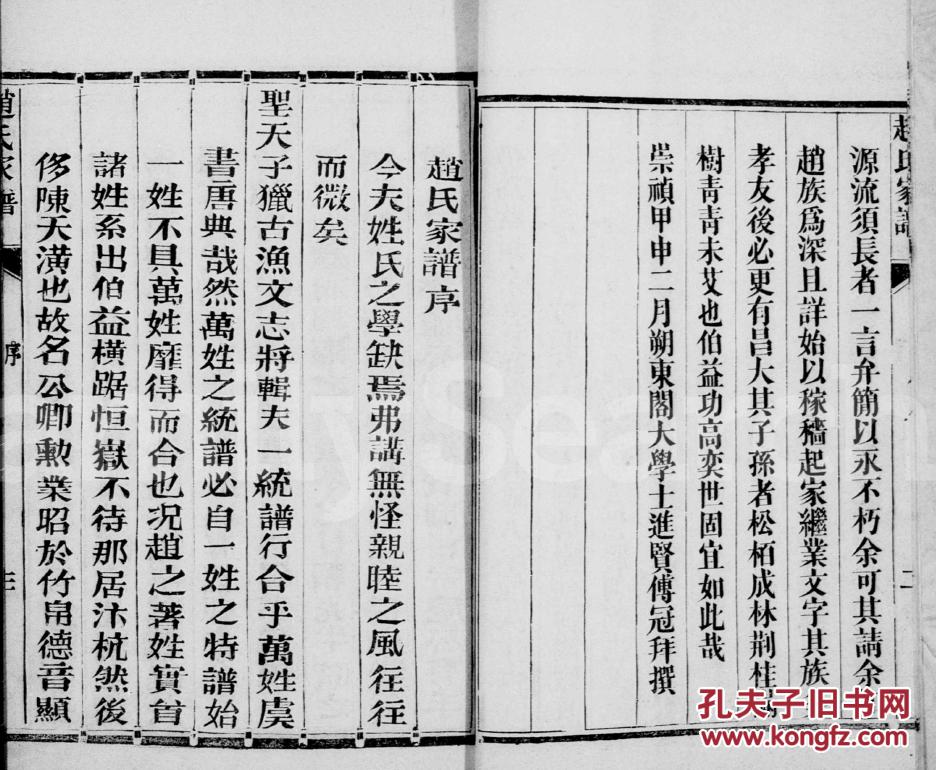 趙氏家譜
二
源流須長者一言弁簡以永不朽余可其請余
趙族爲深且詳始以稼穡起家繼業文字其族
孝友後必更有昌大其子孫者松栢成林荆桂
樹靑靑未艾也伯益功高奕世固宜如此哉
崇禎甲申二月朔東閣大學士進賢傅冠拜撰
趙氏家譜序
今夫姓氏之學缺焉弗講無怪親睦之風往往
而微矣
聖天子獵古漁文志將輯夫一統譜行合乎萬姓虞
書唐典哉然萬姓之統譜必自一姓之特譜始
一姓不具萬姓靡得而合也况趙之著姓實首
諸姓系出伯益横踞恒嶽不待那居汴杭然後
侈陳天潢也故名公卿勳業昭於竹帛德音顯
趙氏家譜
序
三
孔夫子旧书网
www.kongfz.com